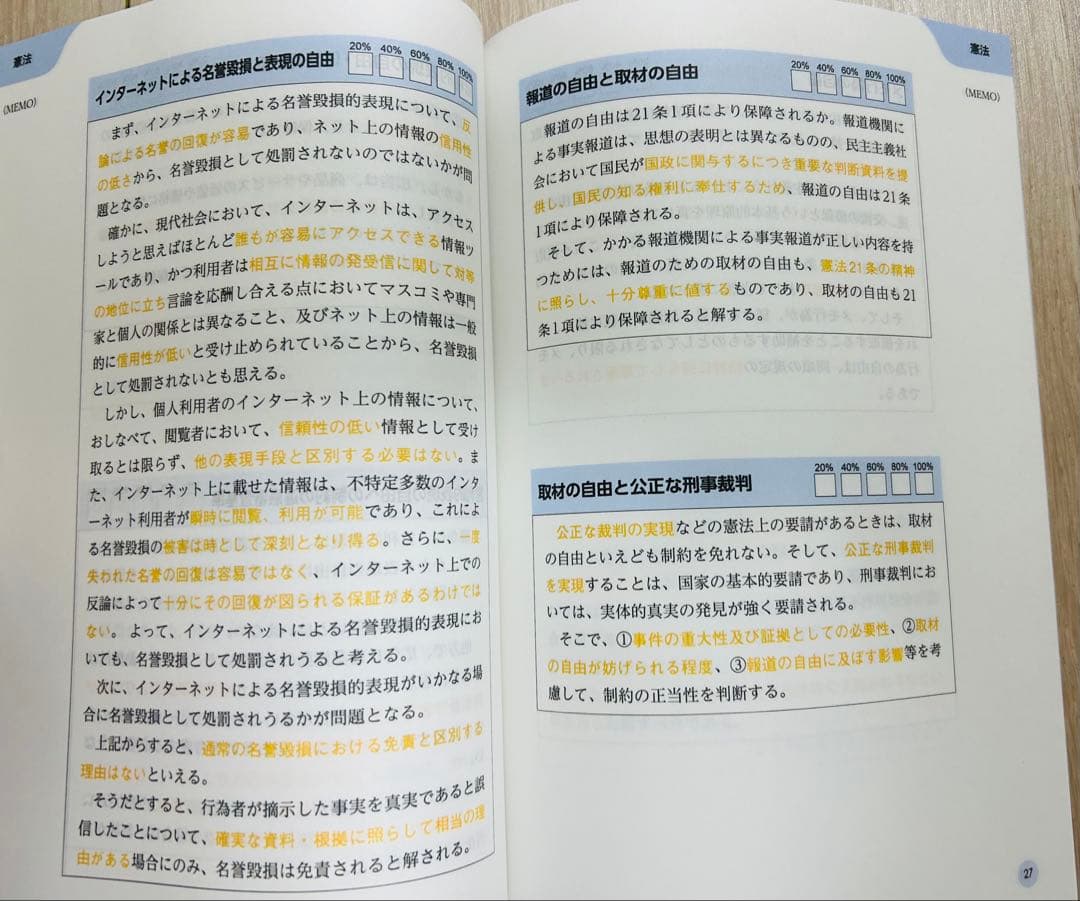 憲法
(MEMO)
インターネットによる名誉毀損と表現の自由
20% 40% 60% 80% 100%
まず、インターネットによる名誉毀損的表現について、反
論による名誉の回復が容易であり、ネット上の情報の信用性
の低さから、名誉毀損として処罰されないのではないかが問
題となる。
確かに、現代社会において、インターネットは、アクセス
しようと思えばほとんど誰もが容易にアクセスできる情報ツ
ールであり、かつ利用者は相互に情報の発受信に関して対等
の地位に立ち言論を応酬し合える点においてマスコミや専門
家と個人の関係とは異なること、及びネット上の情報は一般
的に信用性が低いと受け止められていることから、名誉毀損
として処罰されないとも思える。
しかし、個人利用者のインターネット上の情報について、
おしなべて、閲覧者において、信頼性の低い情報として受け
取るとは限らず、他の表現手段と区別する必要はない。ま
た、インターネット上に載せた情報は、不特定多数のインタ
ーネット利用者が瞬時に閲覧、利用が可能であり、これによ
る名誉毀損の被害は時として深刻となり得る。さらに、一度
失われた名誉の回復は容易ではなく、インターネット上での
反論によって十分にその回復が図られる保証があるわけでは
ない。よって、インターネットによる名誉毀損的表現にお
いても、名誉毀損として処罰されうると考える。
次に、インターネットによる名誉毀損的表現がいかなる場
合に名誉毀損として処罰されうるかが問題となる。
上記からすると、通常の名誉毀損における免責と区別する
理由はないといえる。
そうだとすると、行為者が摘示した事実を真実であると誤
信したことについて、確実な資料・根拠に照らして相当の理
由がある場合にのみ、名誉毀損は免責されると解される。
憲法
(MEMO)
報道の自由と取材の自由
20% 40% 60% 80% 100%
報道の自由は21条1項により保障されるか。報道機関に
よる事実報道は、思想の表明とは異なるものの、民主主義社
会において国民が国政に関与するにつき重要な判断資料を提
供し、国民の知る権利に奉仕するため、報道の自由は21条
1項により保障される。
そして、かかる報道機関による事実報道が正しい内容を持
つためには、報道のための取材の自由も、憲法21条の精神
に照らし、十分尊重に値するものであり、取材の自由も21
条1項により保障されると解する。
取材の自由と公正な刑事裁判
20% 40% 60% 80% 100%
公正な裁判の実現などの憲法上の要請があるときは、取材
の自由といえども制約を免れない。そして、公正な刑事裁判
を実現することは、国家の基本的要請であり、刑事裁判にお
いては、実体的真実の発見が強く要請される。
そこで、①事件の重大性及び証拠としての必要性、②取材
の自由が妨げられる程度、③報道の自由に及ぼす影響等を考
慮して、制約の正当性を判断する。
27